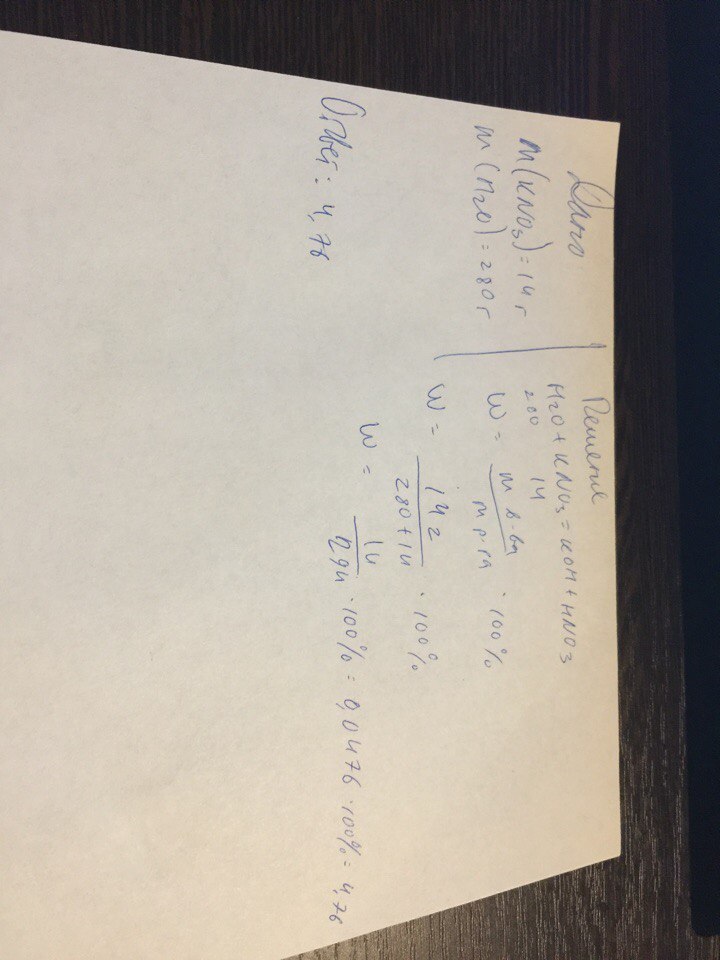 Дано
m(KNO3)=14 г
m(H2O)=280 г
Решение
H2O+KNO3=KOH+HNO3
280 14
W = m в-ва / m р-ра · 100%
W = 14 г / 280+14 · 100%
W = 14 / 294 · 100% = 0,0476 · 100% = 4,76
Ответ: 4,76